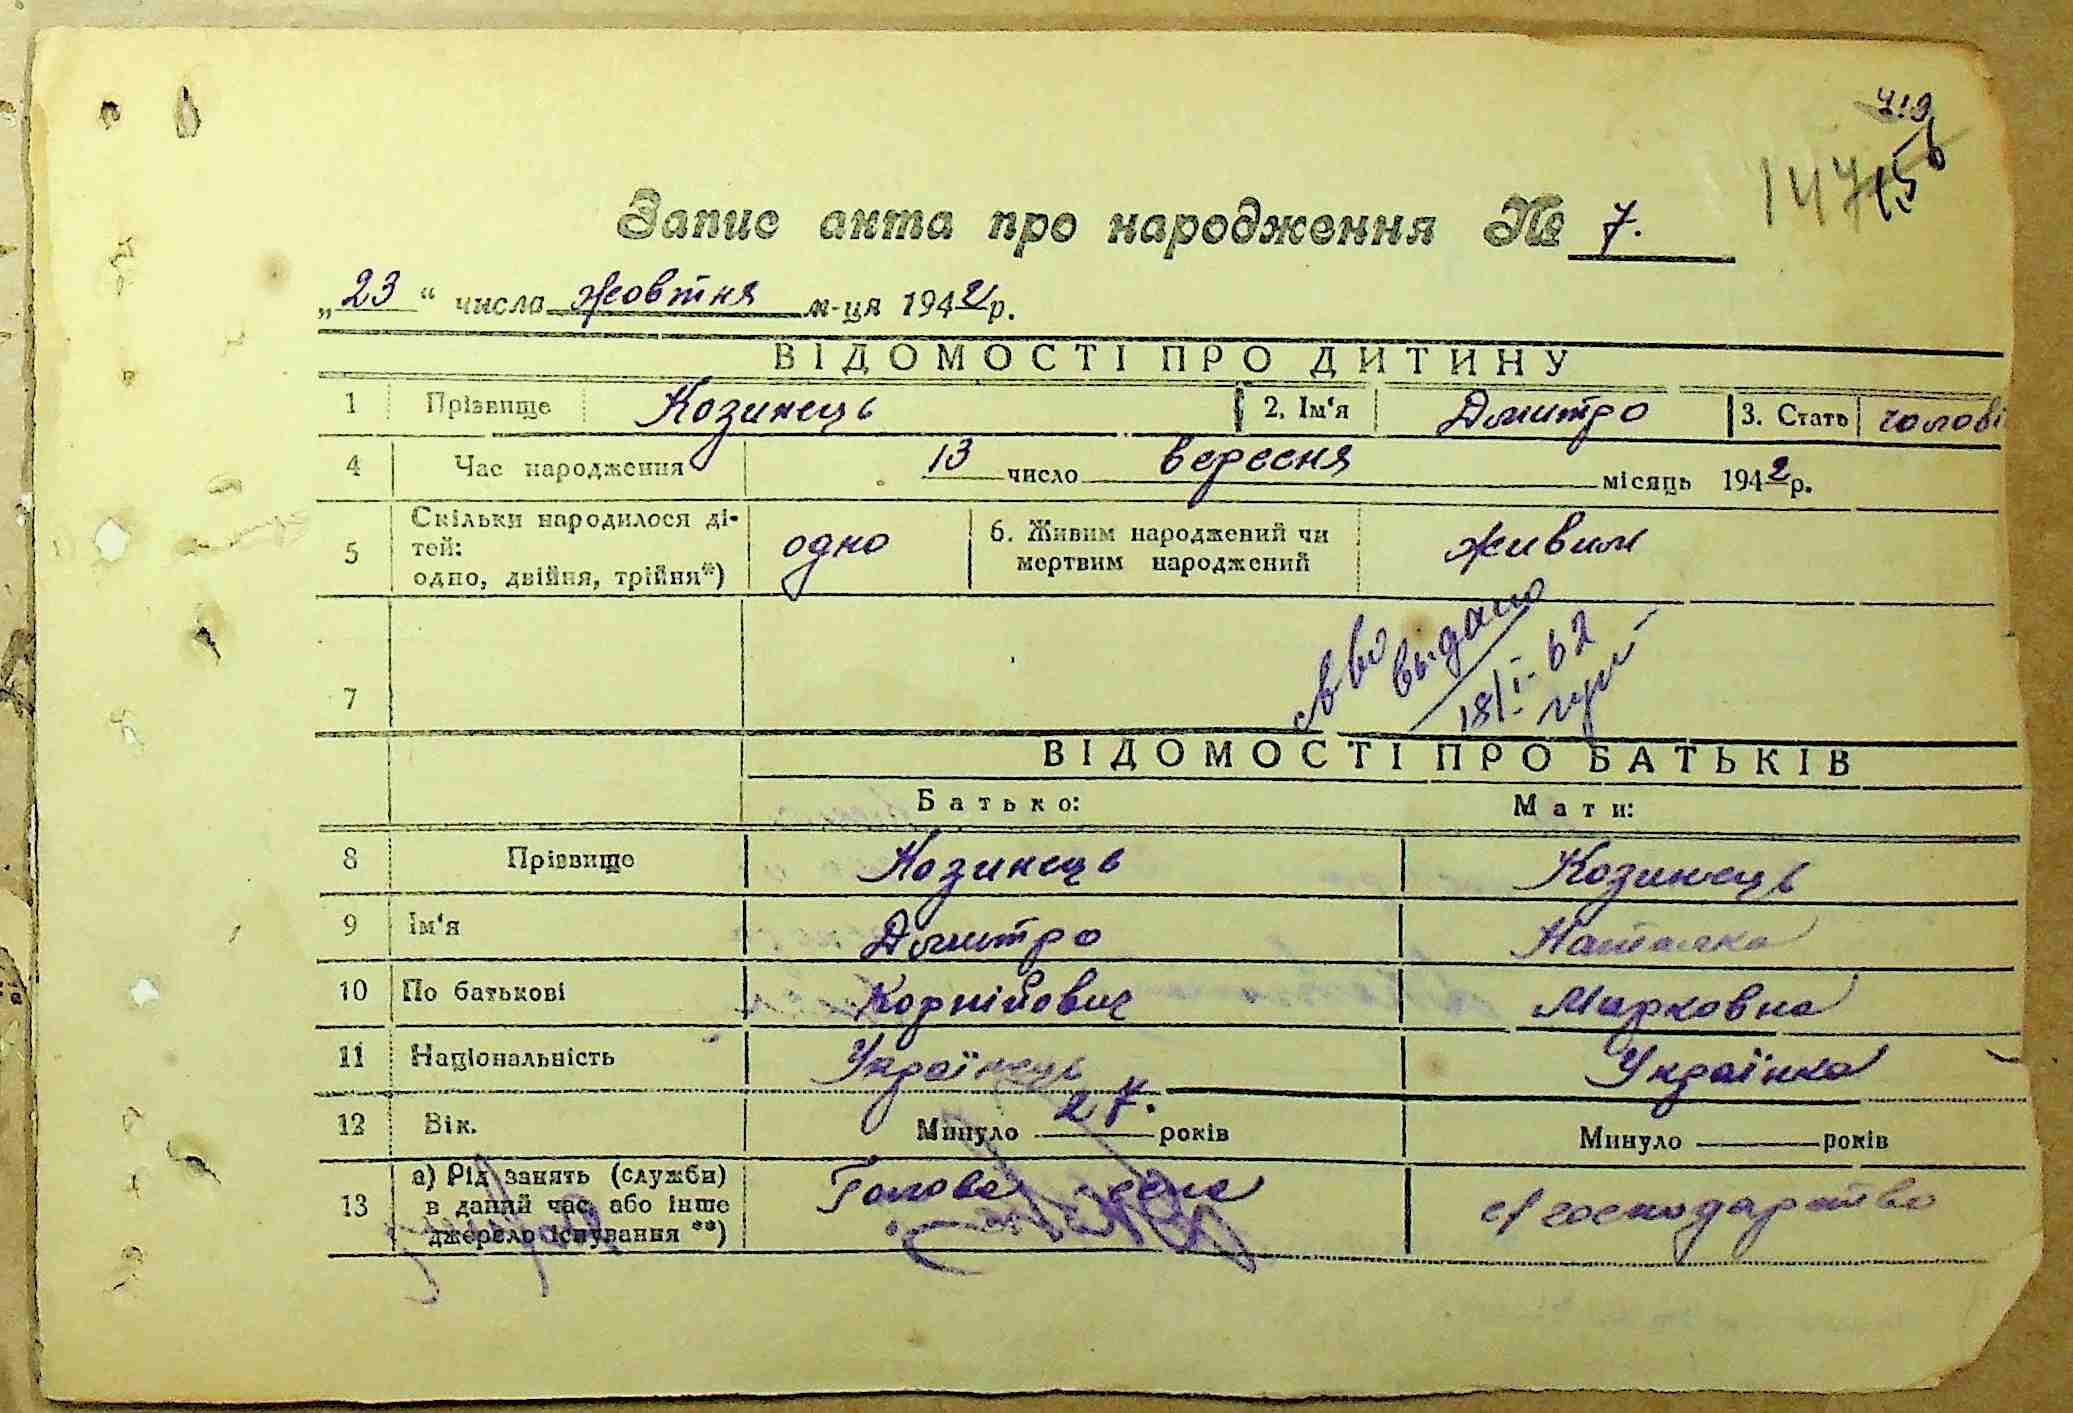 719
147 156
Запис акта про народження № 7.
„23“ числа жовтня м-ця 1942 р.
ВІДОМОСТІ ПРО ДИТИНУ
1 Прізвище Козинець 2. Ім'я Дмитро 3. Стать чолові
4 Час народження 13 число вересня місяць 1942 р.
5 Скільки народилося ді-
тей:
одно, двійня, трійня*) одно 6. Живим народжений чи
мертвим народжений живим
7 св во
выдано
18/I-62
ВІДОМОСТІ ПРО БАТЬКІВ
Батько: Мати:
8 Прізвище Козинець Козинець
9 Ім'я Дмитро Наталка
10 По батькові Корнійович Марковна
11 Національність Українець Українка
12 Вік. Минуло 27. років Минуло років
13 а) Рід занять (служби)
в даний час або інше
джерело існування **) Голова села с/господарство